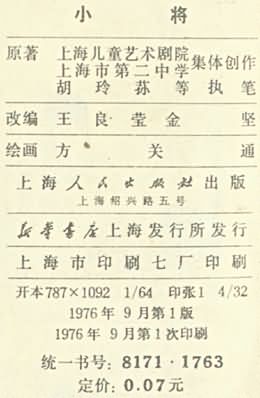 小将
原著 上海儿童艺术剧院 集体创作
上海市第二中学
胡玲荪等执笔
改编 王良莹金坚
绘画 方关通
上海人民出版社出版
上海绍兴路五号
新华书店上海发行所发行
上海市印刷七厂印刷
开本787×1092 1/64 印张1 4/32
1976年9月第1版
1976年9月第1次印刷
统一书号：8171·1763
定价：0.07元